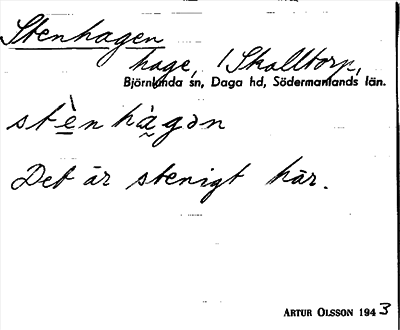 Stenhagen
hage, Skalltorp,
Björnlunda sn, Daga hd, Södermanlands län.
stὲnhàgən
Det är stenigt här.
ARTUR OLSSON 1943